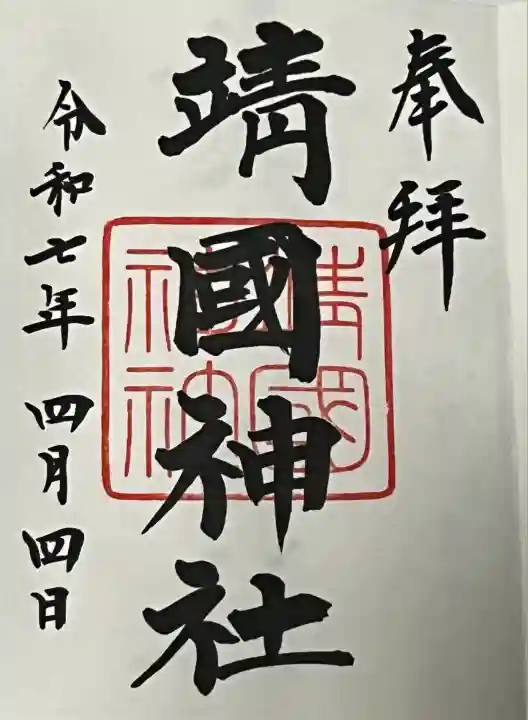 奉拝
靖國神社
靖國
神社
令和七年 四月四日